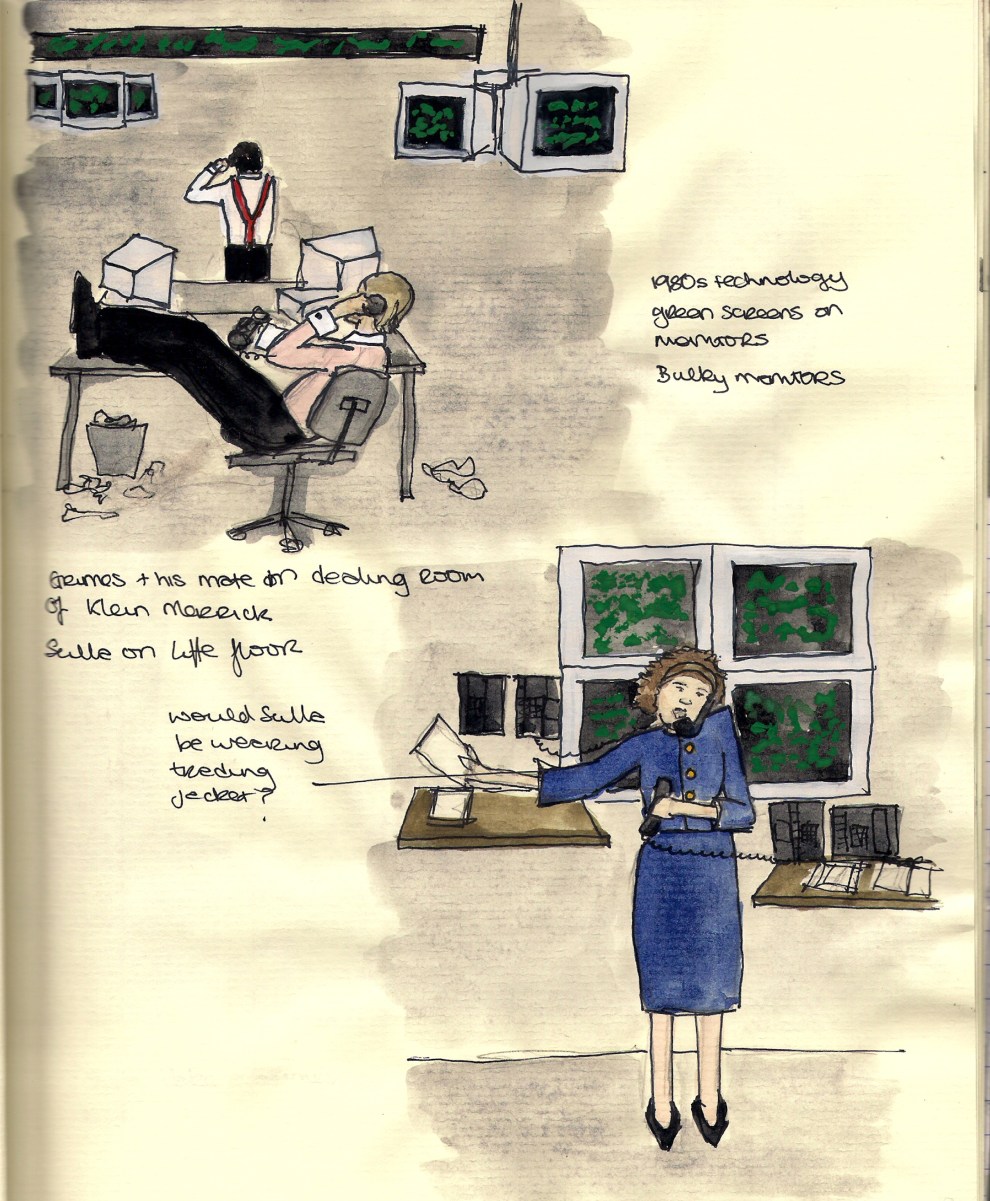 1980s technology
green screens on
monitors
Bulky monitors
Grimes + his mate in dealing room
of Klein Merrick
Scilla on Liffe floor
would Scilla
be wearing
trading
jacket?